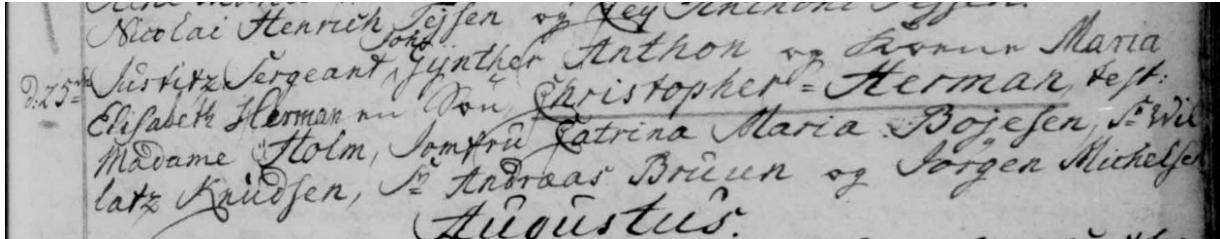 Nicolai Henrich Tejsen og Jey Anthoni Tejsen.
Joh:
d: 25de Justitz Sergeant Gÿnther Anthon og Kone Maria
Elisabeth Herman en Søn Christopher = Herman, test:
Madame Holm, Jomfru Catrina Maria Bojesen, Sr Wil
latz Knudsen, Sr Andræas Bruun og Jörgen Michelsen
Augustus.